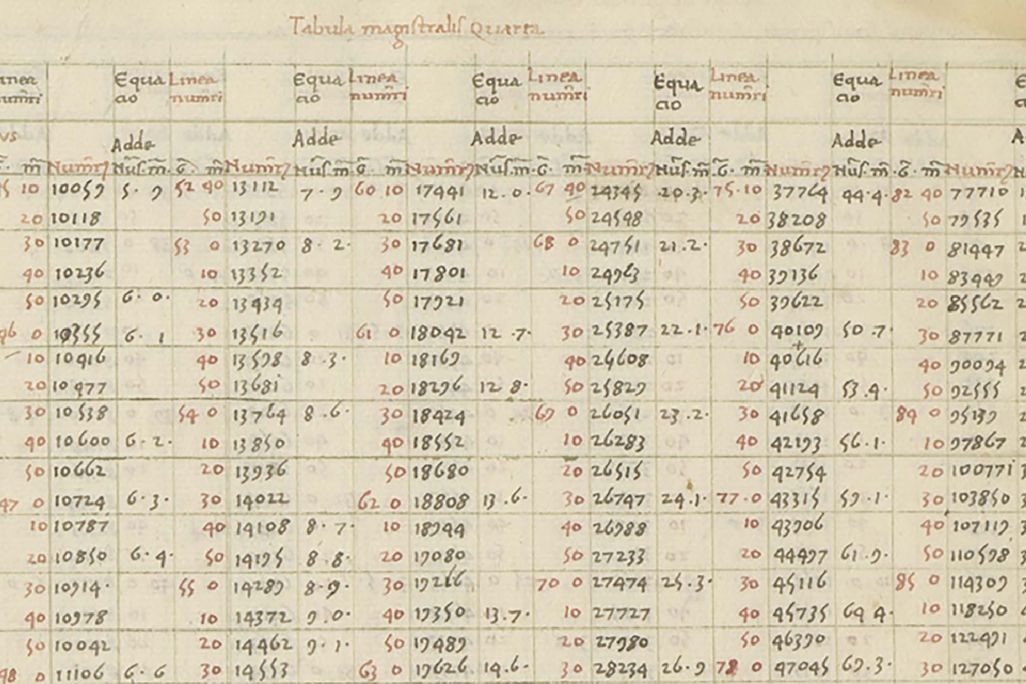 Tabula magistralis Quarta
Equa Linea Equa Linea Equa Linea Equa Linea Equa Linea
cio num̃ri cio num̃ri cio num̃ri cio num̃ri cio num̃ri
Adde Adde Adde Adde Adde
10 10059 5·9 52 40 13112 7·9 60 10 17441 12·0· 67 40 24345 20·3· 75·10 37764 44·4· 82 40 77710
20 10118 50 13191 20 17561 50 24598 20 38208 50 79535
30 10177 53 0 13270 8·2· 30 17681 68 0 24751 21·2· 30 38672 83 0 81447
40 10236 10 13352 40 17801 10 24963 40 39136 10 83449
50 10295 6·0· 20 13434 50 17921 20 25175 50 39622 20 85562
46 0 10355 6·1 30 13516 61 0 18042 12·7· 30 25387 22·1· 76 0 40109 50·7· 30 87771
10 10416 40 13598 8·3· 10 18169 40 26608 10 40616 40 90094
20 10477 50 13681 20 18296 12·8· 50 25829 20 41124 53·4· 50 92555
30 10538 54 0 13764 8·6· 30 18424 69 0 26051 23·2· 30 41658 84 0 95139
40 10600 6·2· 10 13850 40 18552 10 26283 40 42193 56·1· 10 97867
50 10662 20 13936 50 18680 20 26515 50 42754 20 100771
47 0 10724 6·3· 30 14022 62 0 18808 13·6· 30 26747 24·1· 77·0 43315 59·1· 30 103850
10 10787 40 14108 8·7· 10 18944 40 26988 10 43906 40 107119
20 10850 6·4· 50 14195 8·8· 20 19080 50 27233 20 44497 61·9· 50 110598
30 10914· 55 0 14289 8·9· 30 19216 70 0 27474 25·3· 30 45116 85 0 114309
40 10978 10 14372 9·0· 40 19350 13·7· 10 27727 40 45735 64 4· 10 118250
50 10042 20 14462 9·1· 50 19489 20 27980 50 46390 20 122491
48 0 11106 6·6 30 14553 63 0 19626 14·6· 30 28234 26·9 78 0 47045 69·3· 30 127050